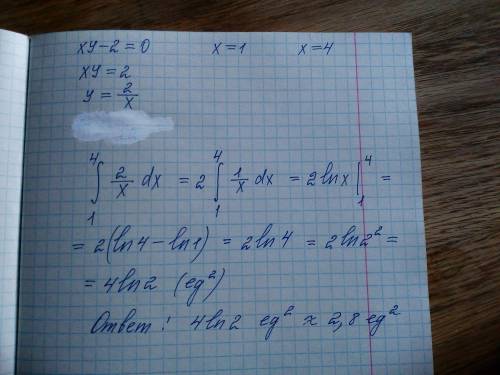 xy-2=0 x=1 x=4
xy=2
y=2/x
∫₁⁴ 2/x dx = 2 ∫₁⁴ 1/x dx = 2 ln x |₁⁴ =
= 2(ln4 - ln1) = 2 ln4 = 2 ln2² =
= 4 ln2 (ед²)
Ответ: 4 ln2 ед² ≈ 2,8 ед²